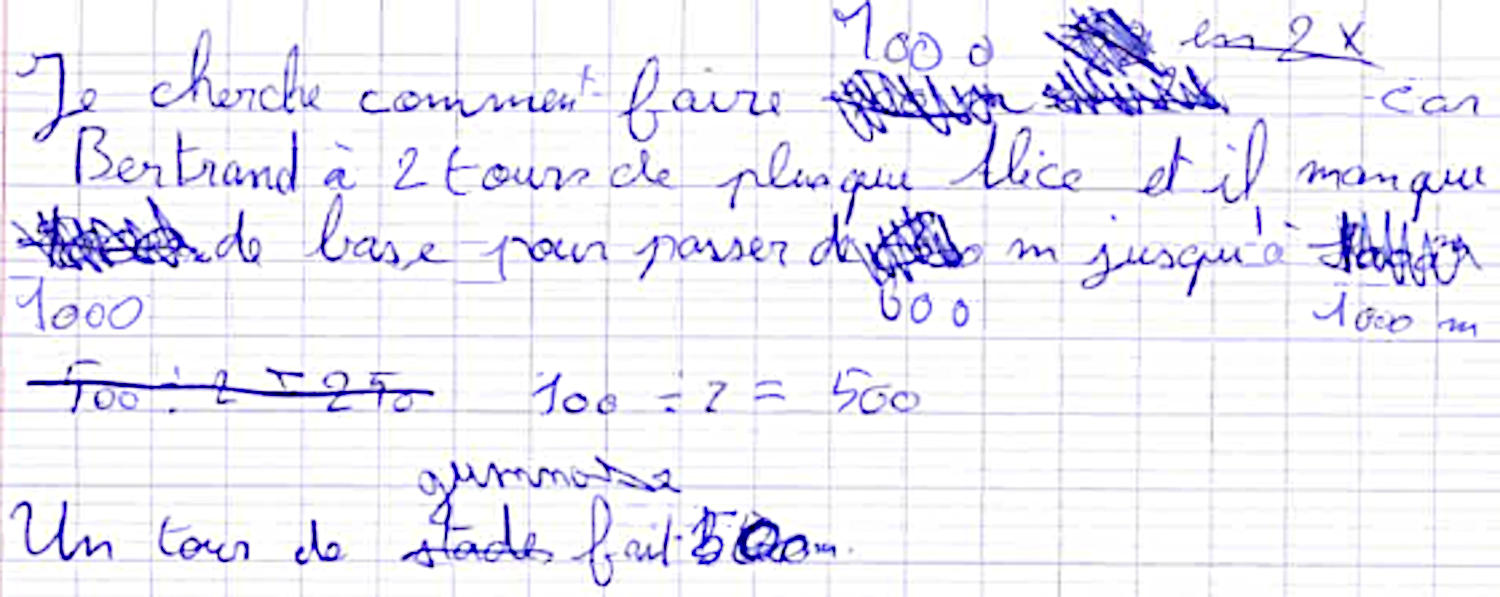 1000 en 2 x
Je cherche comment faire car
Bertrand à 2 tours de plus que Alice et il manque
de base pour passer de m jusqu'à
1000 600 1000 m
500 ÷ 2 = 250 100 ÷ 2 = 500
gymnase
Un tour de stade fait 500m.